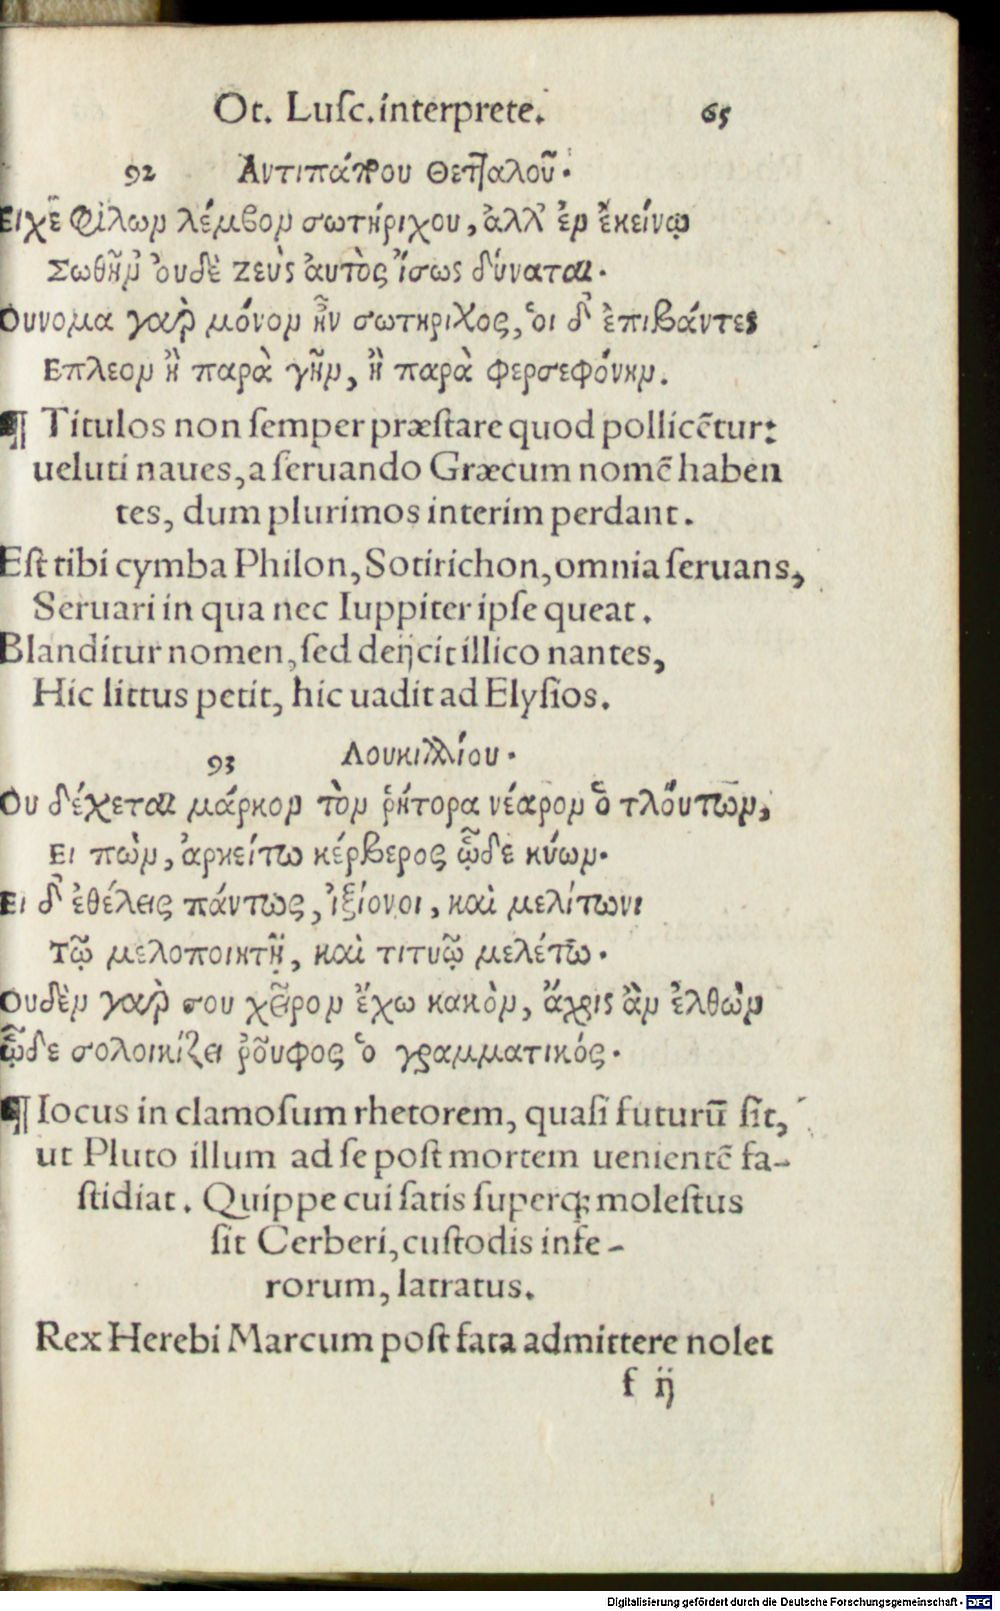 Ot. Luſc. interprete. 65
92 Αντιπάτρου Θετ̃αλοῦ.
Ειχε Φίλων λέμβον σωτήριχου, ἀλλ' ἐν ἐκείνῳ
Σωθῆν' ὀυδὲ Ζεὺς ἀυτὸς ἴσως δύναται.
Ουνομα γαὰρ μόνον ἦν σωτηριχος, ὁι δ' ἐπιβάντες
Επλεον ἢ παρὰ γῆν, ἢ παρὰ φερσεφόνην.
¶ Titulos non ſemper præſtare quod pollicẽtur:
ueluti naues, a ſeruando Græcum nomẽ haben
tes, dum plurimos interim perdant.
Eſt tibi cymba Philon, Sotirichon, omnia ſeruans,
Seruari in qua nec Iuppiter ipſe queat.
Blanditur nomen, ſed deijcit illico nantes,
Hic littus petit, hic uadit ad Elyſios.
93 Λουκιλλίου.
Ου δέχεται μάρκον τὸν ῥήτορα νέκρον ὁ πλούτων,
Ει πὼν, ἀρκείτω κέρβερος ᾧδε κύων.
Ει δ' ἐθέλεις πάντως, ἰξίονοι, καὶ μελίτωνι
Τῷ μελοποιητῇ, καὶ τιτυῷ μελέτω.
Ουδὲν γαὰρ σου χεῖρον ἔχω κακὸν, ἄχρις ἂν ἐλθὼν
ᾧδε σολοικίζει ῥοῦφος ὁ γραμματικός.
¶ Iocus in clamoſum rhetorem, quaſi futurũ ſit,
ut Pluto illum ad ſe poſt mortem uenientẽ fa-
ſtidiat. Quippe cui ſatis ſuperq; moleſtus
ſit Cerberi, cuſtodis infe-
rorum, latratus.
Rex Herebi Marcum poſt fata admittere nolet
f ij
Digitalisierung gefördert durch die Deutsche Forschungsgemeinschaft - DFG